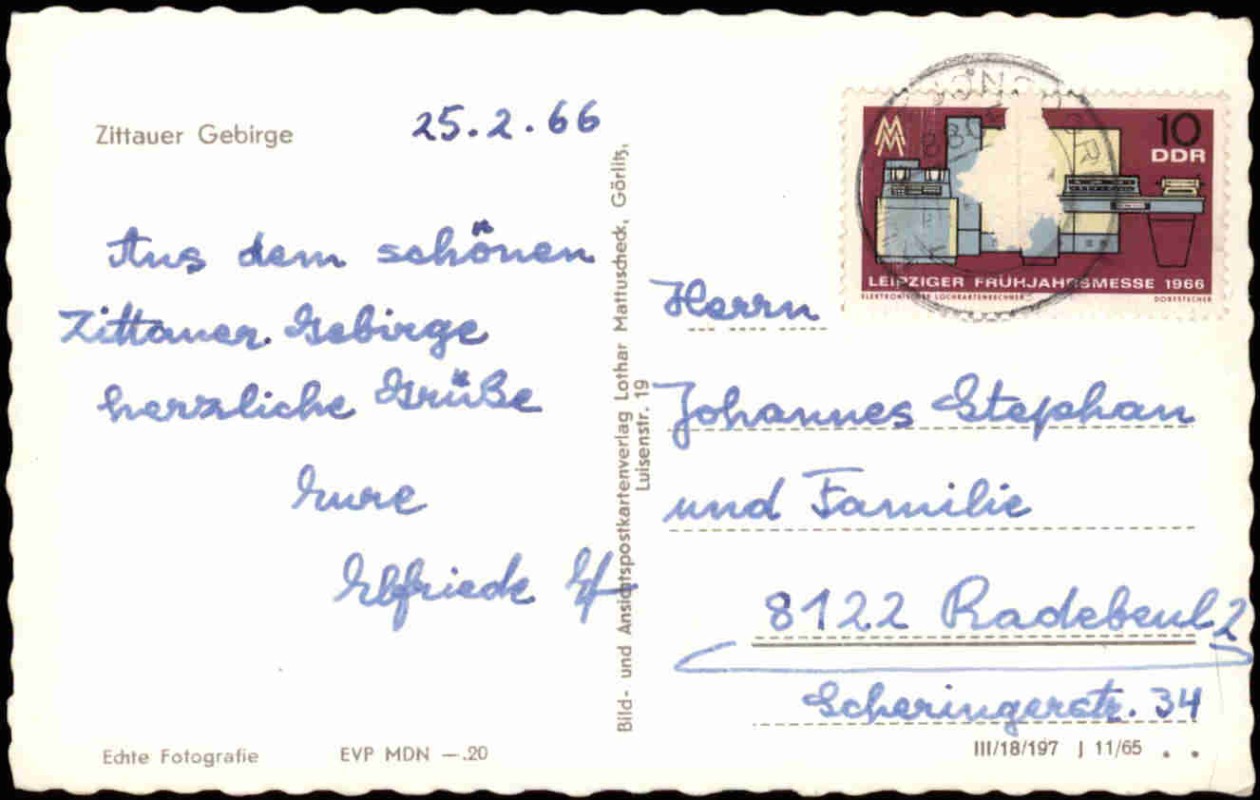 Zittauer Gebirge
25.2.66
Aus dem schönen
Zittauer Gebirge
herzliche Grüße
Eure
Elfriede
Bild- und Ansichtspostkartenverlag Lothar Mattuscheck, Görlitz,
Luisenstr. 19
10
DDR
LEIPZIGER FRÜHJAHRSMESSE 1966
ELEKTRONISCHER LOCHKARTENRECHNER
DORFSTECHER
Herrn
Johannes Stephan
und Familie
8122 Radebeul 2
Scheringerstr. 34
Echte Fotografie
EVP MDN —.20
III/18/197 J 11/65